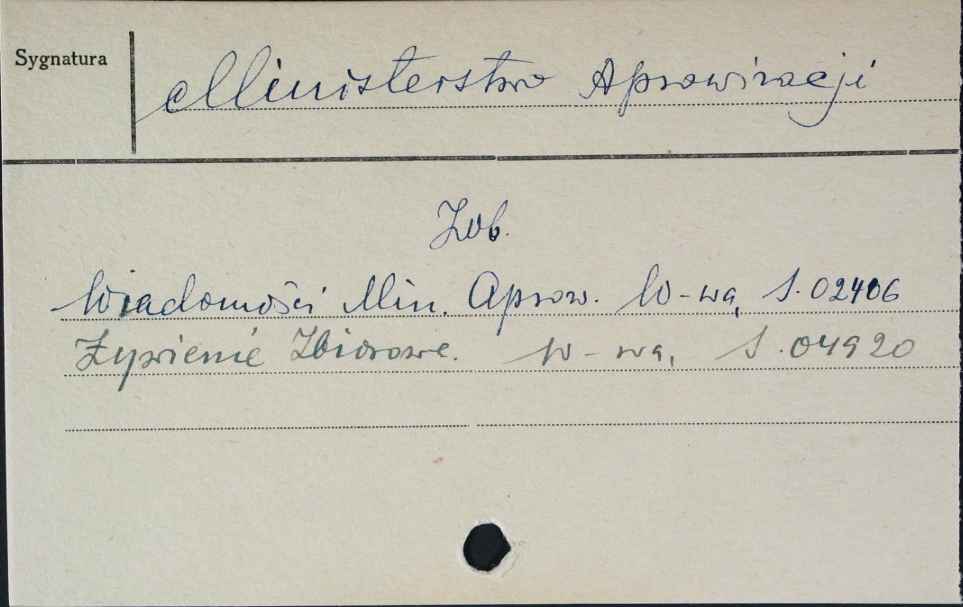 Sygnatura
Ministerstwo Aprowizacji
Zob.
Wiadomości Min. Aprow. W-wa, S.02406
Żywienie Zbiorowe. W-wa, S.04920